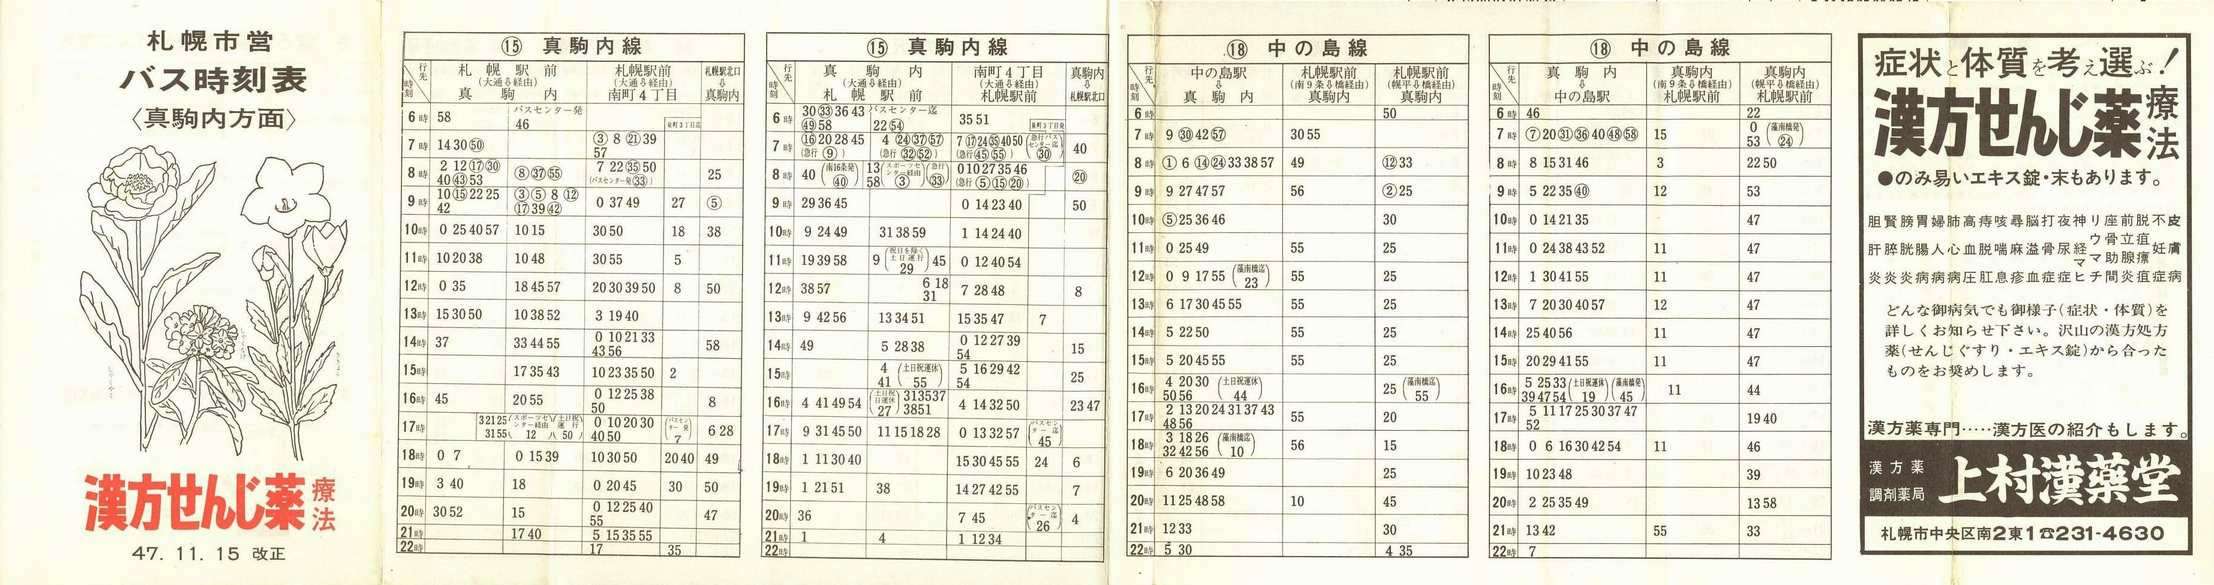 札幌市営
バス時刻表
〈真駒内方面〉
漢方せんじ薬 療法
47. 11. 15 改正
⑮ 真駒内線
行先 時刻 札幌駅前 (大通⇩経由) 真駒内 札幌駅前 (大通⇩経由) 南町4丁目 札幌駅北口 ⇩ 真駒内
6時 58 バスセンター発 46
7時 14 30 ㊿ ③ 8 ㉑ 39 57
8時 2 12 ⑰ ㉚ 40 ㊸ 53 ⑧ ㊲ 55 7 22 ㉟ 50 (バスセンター発 ㉝) 25
9時 10 ⑮ 22 25 42 ③ ⑤ 8 ⑫ ⑰ 39 ㊷ 0 37 49 27 ⑤
10時 0 25 40 57 10 15 30 50 18 38
11時 10 20 38 10 48 30 55 5
12時 0 35 18 45 57 20 30 39 50 8 50
13時 15 30 50 10 38 52 3 19 40
14時 37 33 44 55 0 10 21 33 43 56 58
15時 17 35 43 10 23 35 50 2
16時 45 20 55 0 12 25 38 50 8
17時 3 21 25 31 55 (スポーツセンター経由 12) (土日祝運行 50) 0 10 20 30 40 50 (バスセンター発 7) 6 28
18時 0 7 0 15 39 10 30 50 20 40 49
19時 3 40 18 0 20 45 30 50
20時 30 52 15 0 12 25 40 55 47
21時 17 40 5 15 35 55
22時 17 35
⑮ 真駒内線
行先 時刻 真駒内 (大通⇩経由) 札幌駅前 南町4丁目 (大通⇩経由) 札幌駅前 真駒内 ⇩ 札幌駅北口
6時 30 ㉝ 36 43 ㊾ 58 バスセンター迄 22 54 35 51
7時 ⑯ 20 28 45 (急行 ⑨) 4 ㉔ ㊲ 57 (急行 ㉜ 52) 7 ⑰ ㉔ ㉟ 40 50 (急行 ㊺ 55) (急行バスセンター迄 ㉚) 40
8時 40 (南16条発 ㊵) 13 58 (スポーツセンター経由 ③) (急行 ㉝) 0 10 27 35 46 (急行 ⑤ ⑮ ⑳) ⑳
9時 29 36 45 0 14 23 40 50
10時 9 24 49 31 38 59 1 14 24 40
11時 19 39 58 9 (祝日を除く土日運行 29) 45 0 12 40 54
12時 38 57 6 18 31 7 28 48 8
13時 9 42 56 13 34 51 15 35 47 7
14時 49 5 28 38 0 12 27 39 54 15
15時 4 41 (土日祝運休 55) 5 16 29 42 54 25
16時 4 41 49 54 (土日祝日運休 27) 31 35 37 38 51 4 14 32 50 23 47
17時 9 31 45 50 11 15 18 28 0 13 32 57 (バスセンター迄 45)
18時 1 11 30 40 15 30 45 55 24 6
19時 1 21 51 38 14 27 42 55 7
20時 36 7 45 (バスセンター迄 26) 4
21時 1 4 1 12 34
22時
⑱ 中の島線
行先 時刻 中の島駅 ⇩ 真駒内 札幌駅前 (南9条⇩橋経由) 真駒内 札幌駅前 (幌平⇩橋経由) 真駒内
6時 50
7時 9 ㉚ 42 57 30 55
8時 ① 6 ⑭ ㉔ 33 38 57 49 ⑫ 33
9時 9 27 47 57 56 ② 25
10時 ⑤ 25 36 46 30
11時 0 25 49 55 25
12時 0 9 17 55 (藻南橋迄 23) 55 25
13時 6 17 30 45 55 55 25
14時 5 22 50 55 25
15時 5 20 45 55 55 25
16時 4 20 30 50 56 (土日祝運休 44) 25 (藻南橋迄 55)
17時 2 13 20 24 31 37 43 48 56 55 20
18時 3 18 26 32 42 56 (藻南橋迄 10) 56 15
19時 6 20 36 49 25
20時 11 25 48 58 10 45
21時 12 33 30
22時 5 30 4 35
⑱ 中の島線
行先 時刻 真駒内 ⇩ 中の島駅 真駒内 (南9条⇩橋経由) 札幌駅前 真駒内 (幌平⇩橋経由) 札幌駅前
6時 46 22
7時 ⑦ 20 ㉛ 36 40 ㊽ 58 15 0 53 (藻南橋発 ㉔)
8時 8 15 31 46 3 22 50
9時 5 22 35 ㊵ 12 53
10時 0 14 21 35 47
11時 0 24 38 43 52 11 47
12時 1 30 41 55 11 47
13時 7 20 30 40 57 12 47
14時 25 40 56 11 47
15時 20 29 41 55 11 47
16時 5 25 33 39 47 54 (土日祝運休 19) (藻南橋発 45) 11 44
17時 5 11 17 25 30 37 47 52 19 40
18時 0 6 16 30 42 54 11 46
19時 10 23 48 39
20時 2 25 35 49 13 58
21時 13 42 55 33
22時 7
症状と体質を考え選ぶ!
漢方せんじ薬 療法
●のみ易いエキス錠・末もあります。
胆肝炎 腎膵炎 膀胱炎 胃腸病 婦人病 肺心病 高血圧 痔脱肛 咳喘息 蕁麻疹 脳溢血 打骨症 夜尿症 神経マヒ リウマチ 座骨 前立腺炎 脱疽 不妊症 皮膚病
どんな御病気でも御様子(症状・体質)を
詳しくお知らせ下さい。沢山の漢方処方
薬(せんじぐすり・エキス錠)から合った
ものをお奨めします。
漢方薬専門‥‥‥漢方医の紹介もします。
漢方薬
調剤薬局
上村漢薬堂
札幌市中央区南2東1☎231-4630